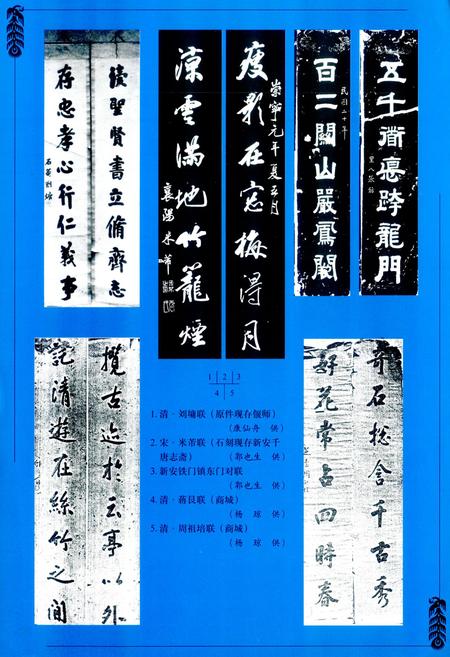 讀聖賢書立脩齊志
存忠孝心行仁義事
石菴劉墉
瘦影在窓梅得月
崇寧元年夏五月
涼雲滿地竹籠煙
襄陽米芾
五千衜悳跨龍門
百二關山嚴鳳闕
民國二十年
攬古迹於云亭以外
記清遊在絲竹之間
奇石揔含千古秀
好花常占四時春
1 2 3
4 5
1. 清·刘墉联（原件现存偃师）
（康仙舟 供）
2. 宋·米芾联（石刻现存新安千
唐志斋） （郭也生 供）
3. 新安铁门镇东门对联
（郭也生 供）
4. 清·蒋艮联（商城）
（杨 琼 供）
5. 清·周祖培联（商城）
（杨 琼 供）